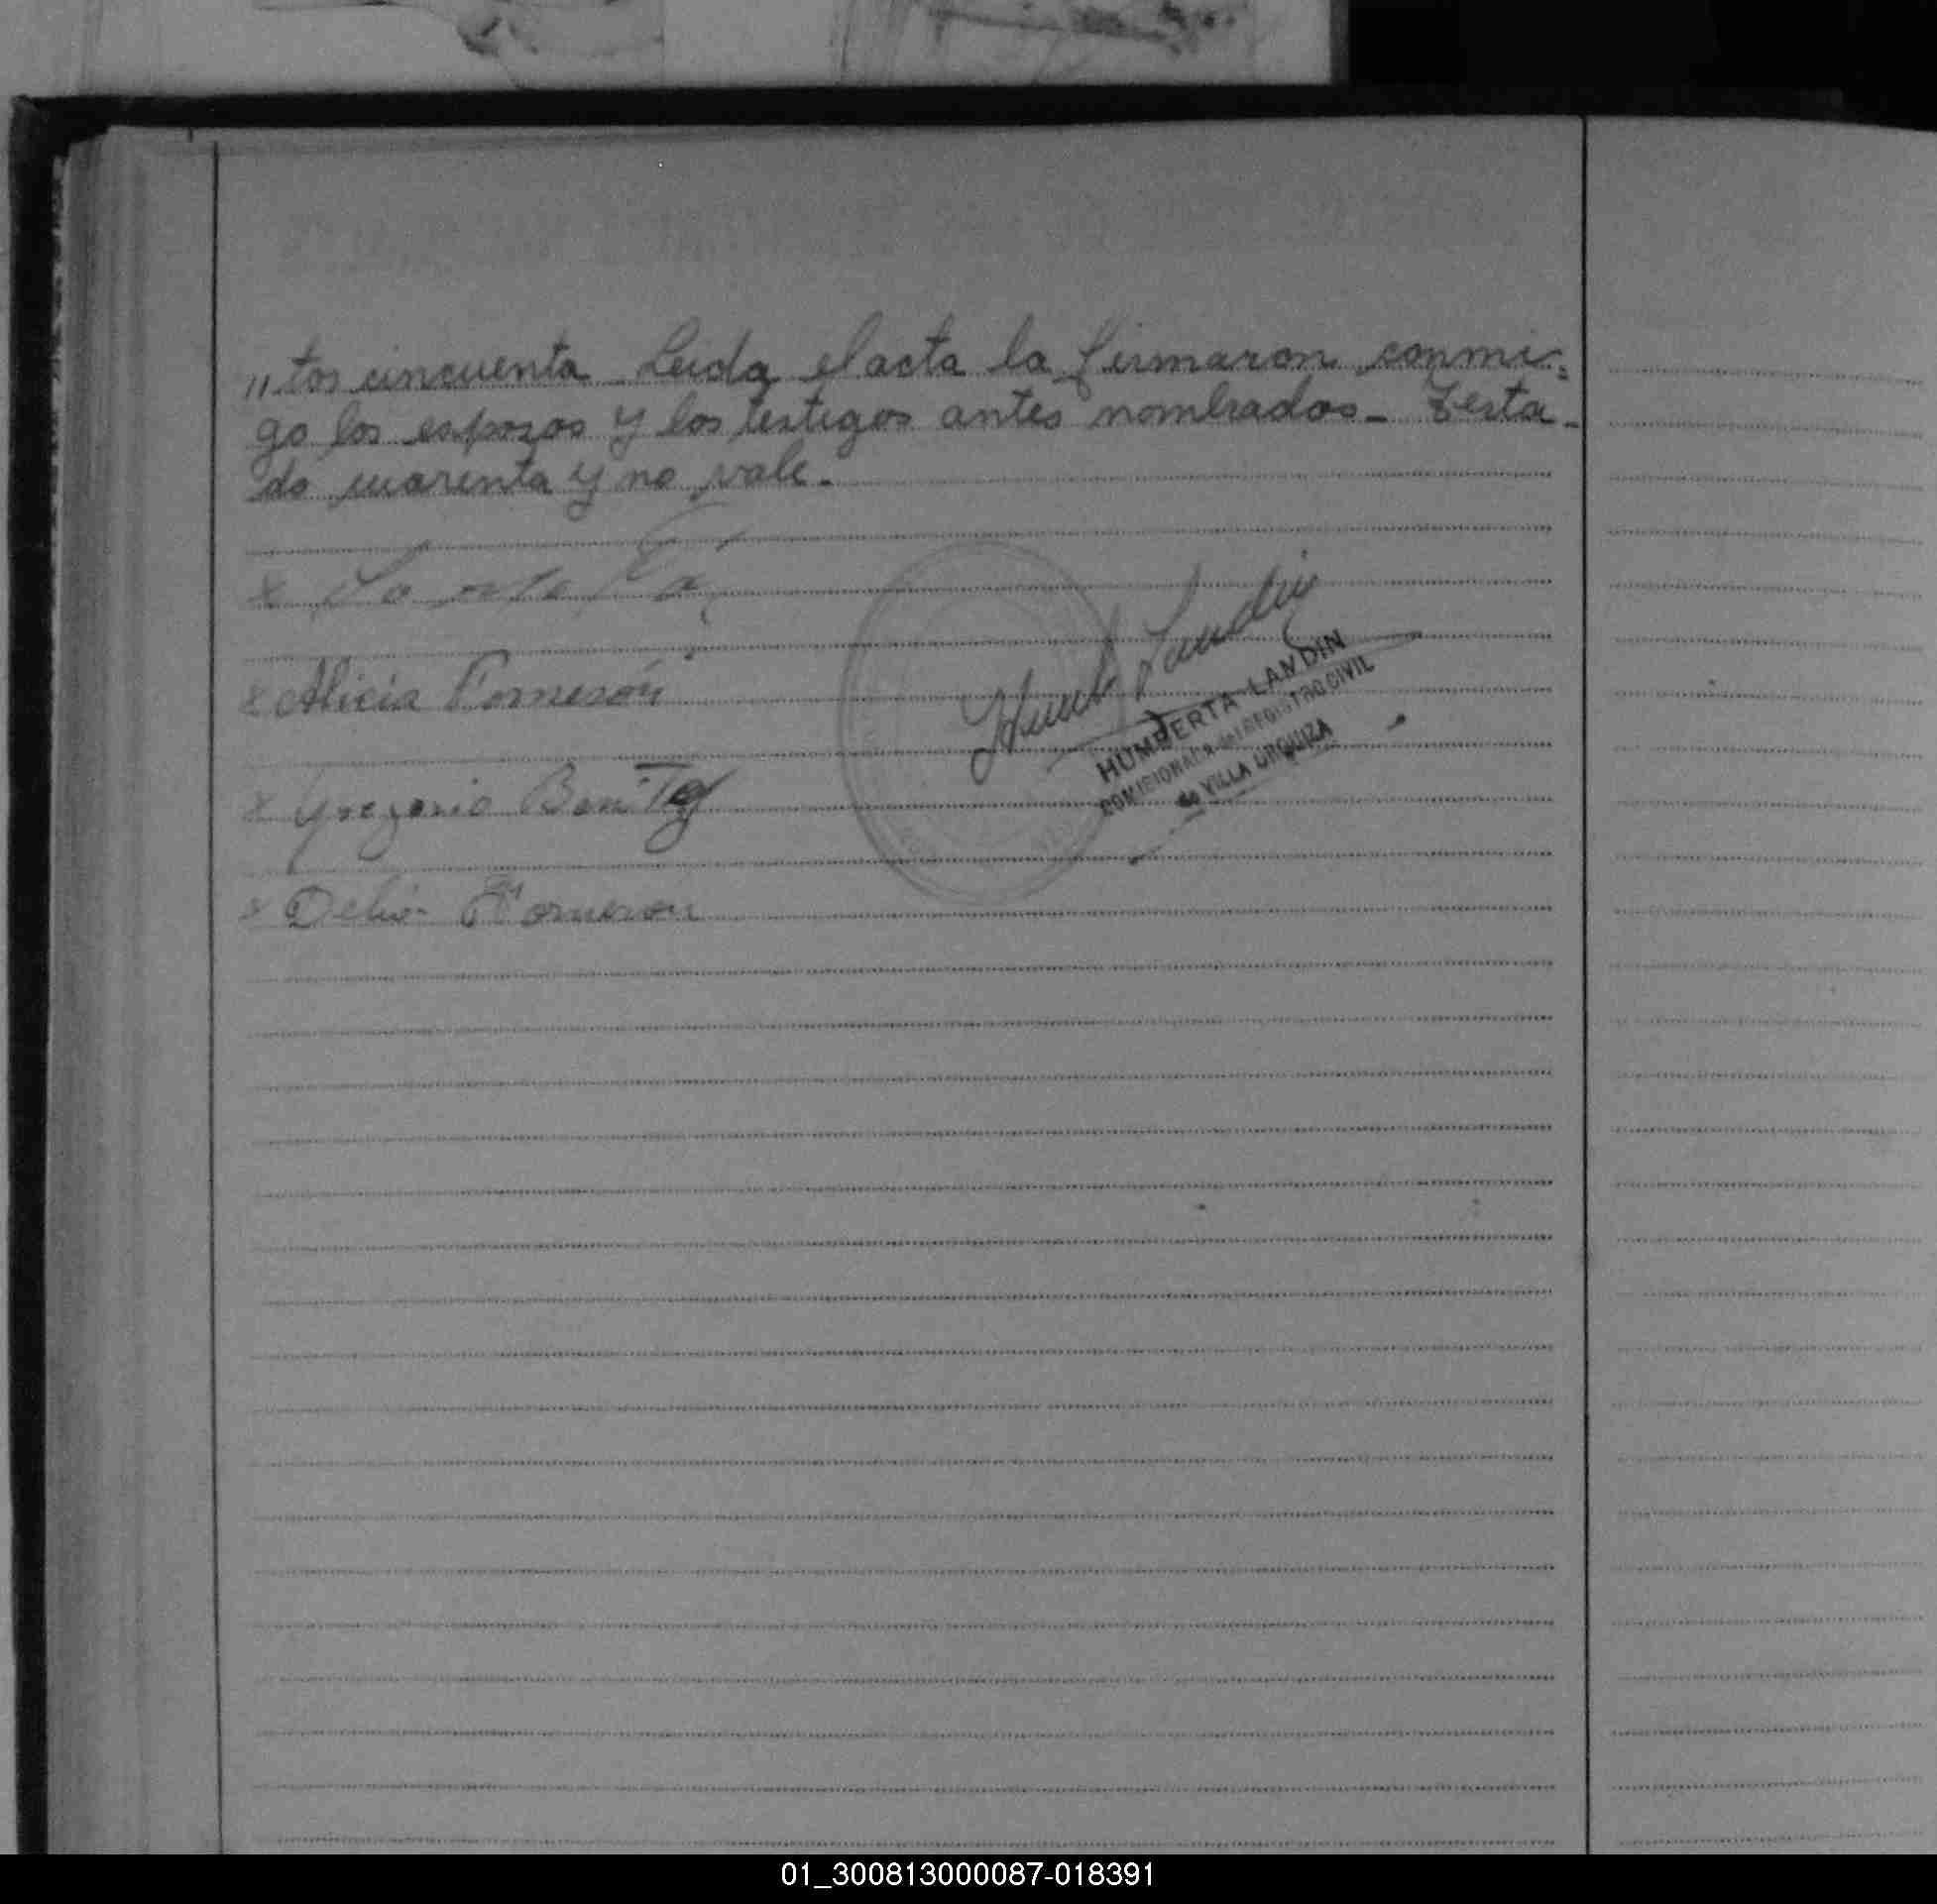 "tos cincuenta Leida el acta la firmaron conmi=
go los espozos y los testigos antes nombrados - Testa-
do cuarenta y no vale.
x Alicia Forneron
x Gregorio Benitez
x Delio Forneron
HUMBERTA LANDIN
COMISIONADA del REGISTRO CIVIL
de VILLA URQUIZA
01_300813000087-018391